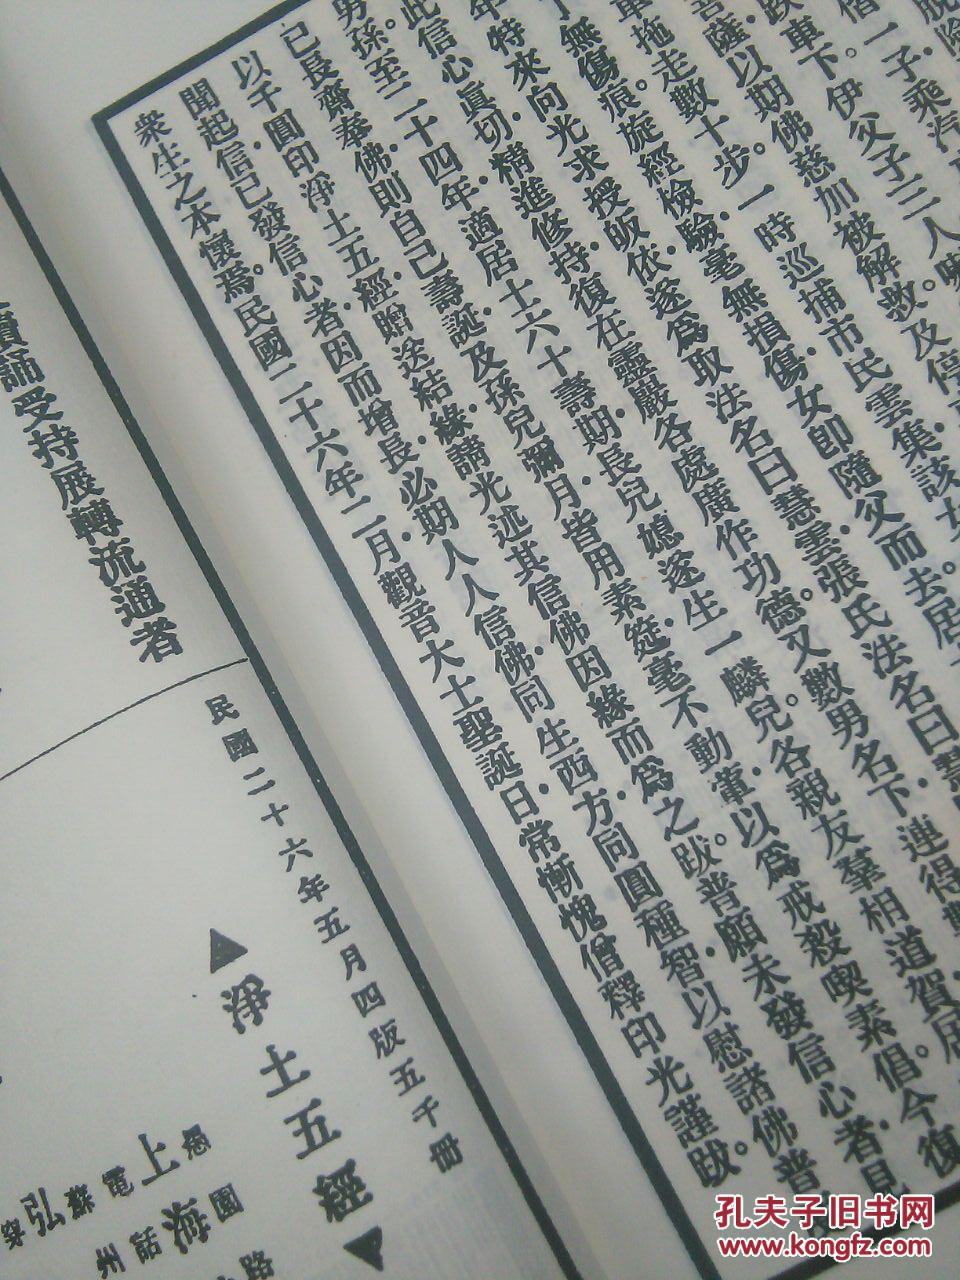 脫險
借一子乘汽
跌車下。伊父子三人
菩薩以期佛慈加被解救。及停
車拖走數十步。一時巡捕市民雲集該女
了無傷痕。旋經檢驗毫無損傷。女即隨父而去。居
年特來向光求授皈依。遂為取法名曰慧雲。張氏法名曰慧
此信心眞切。精進修持。復在靈巖各處廣作功德。又數男名下。連得
男孫。至二十四年。適居士六十壽期。長兒媳遂生一麟兒。各親友羣相道賀。居
已長齋奉佛。則自己壽誕。及孫兒彌月。皆用素筵。毫不動葷。以為戒殺喫素倡。今復
以千圓印淨土五經。贈送結緣。請光述其信佛因緣而為之跋。普願未發信心者。見
聞起信。已發信心者。因而增長。必期人人信佛。同生西方。同圓種智。以慰諸佛普
衆生之本懷焉。民國二十六年二月。觀音大士聖誕日。常慚愧僧釋印光謹跋。
讀誦受持展轉流通者
民國二十六年五月四版五千冊
▲淨土五經▼
上海
弘
電話
蘇州
孔夫子旧书网
www.kongfz.com